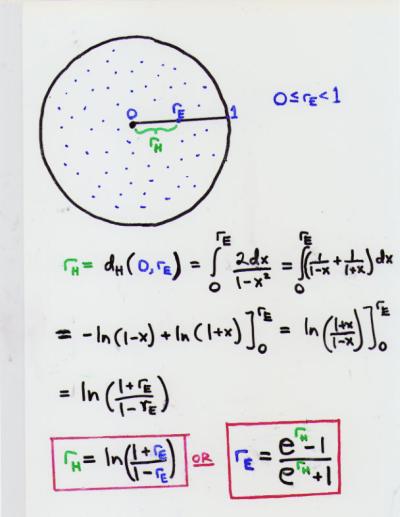 0 r_E 1
r_H
0 ≤ r_E < 1
r_H = d_H(0, r_E) = ∫_0^{r_E} 2dx/(1-x²) = ∫_0^{r_E} (1/(1-x) + 1/(1+x)) dx
= -ln(1-x) + ln(1+x)]_0^{r_E} = ln((1+x)/(1-x))]_0^{r_E}
= ln((1+r_E)/(1-r_E))
r_H = ln((1+r_E)/(1-r_E)) OR r_E = (e^{r_H}-1)/(e^{r_H}+1)